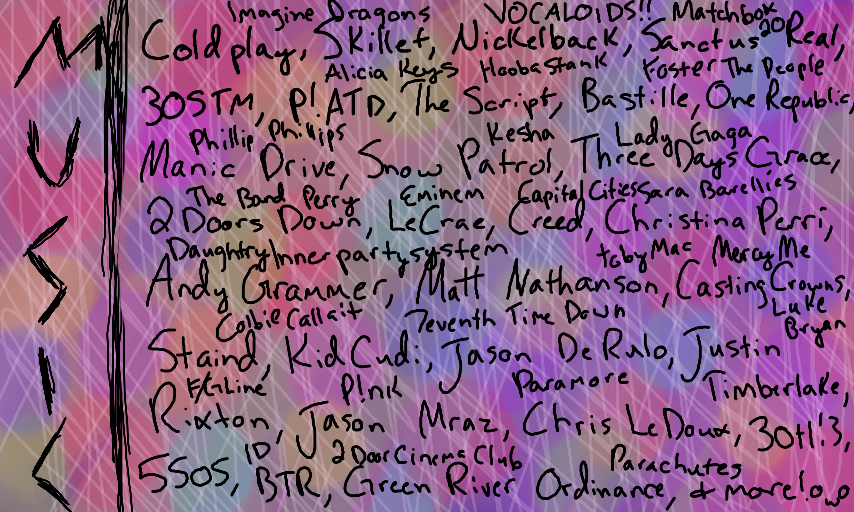 MUSIC
Imagine Dragons VOCALOIDS!! Matchbox 20
Coldplay, Skillet, Nickelback, Sanctus Real,
Alicia Keys Hoobastank Foster The People
30STM, P!ATD, The Script, Bastille, One Republic,
Phillip Phillips Kesha Lady Gaga
Manic Drive, Snow Patrol, Three Days Grace,
The Band Perry Eminem Capital Cities Sara Barellies
2 Doors Down, LeCrae, Creed, Christina Perri,
Daughtry Innerpartysystem tobyMac MercyMe
Andy Grammer, Matt Nathanson, Casting Crowns,
Colbie Callait 7eventh Time Down Luke Bryan
Staind, Kid Cudi, Jason DeRulo, Justin
FGLine P!nk Paramore Timberlake,
Rixton, Jason Mraz, Chris LeDoux, 30H!3,
1D 2 Door Cinema Club Parachutes
5SOS, BTR, Green River Ordinance, & more!